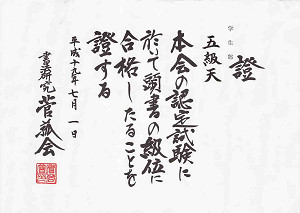 學生部
證
五級天
本会の認定試験に
於て頭書の級位に
合格したることを
證する
平成十九年七月一日
書道研究 菅菰会